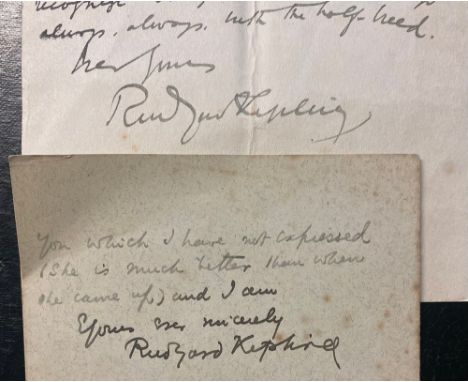 recognize
always, always, with the half-breed.
Ever Yours
Rudyard Kipling
you which I have not expressed
(She is much better than when
she came up) and I am
Yours ever sincerely
Rudyard Kipling